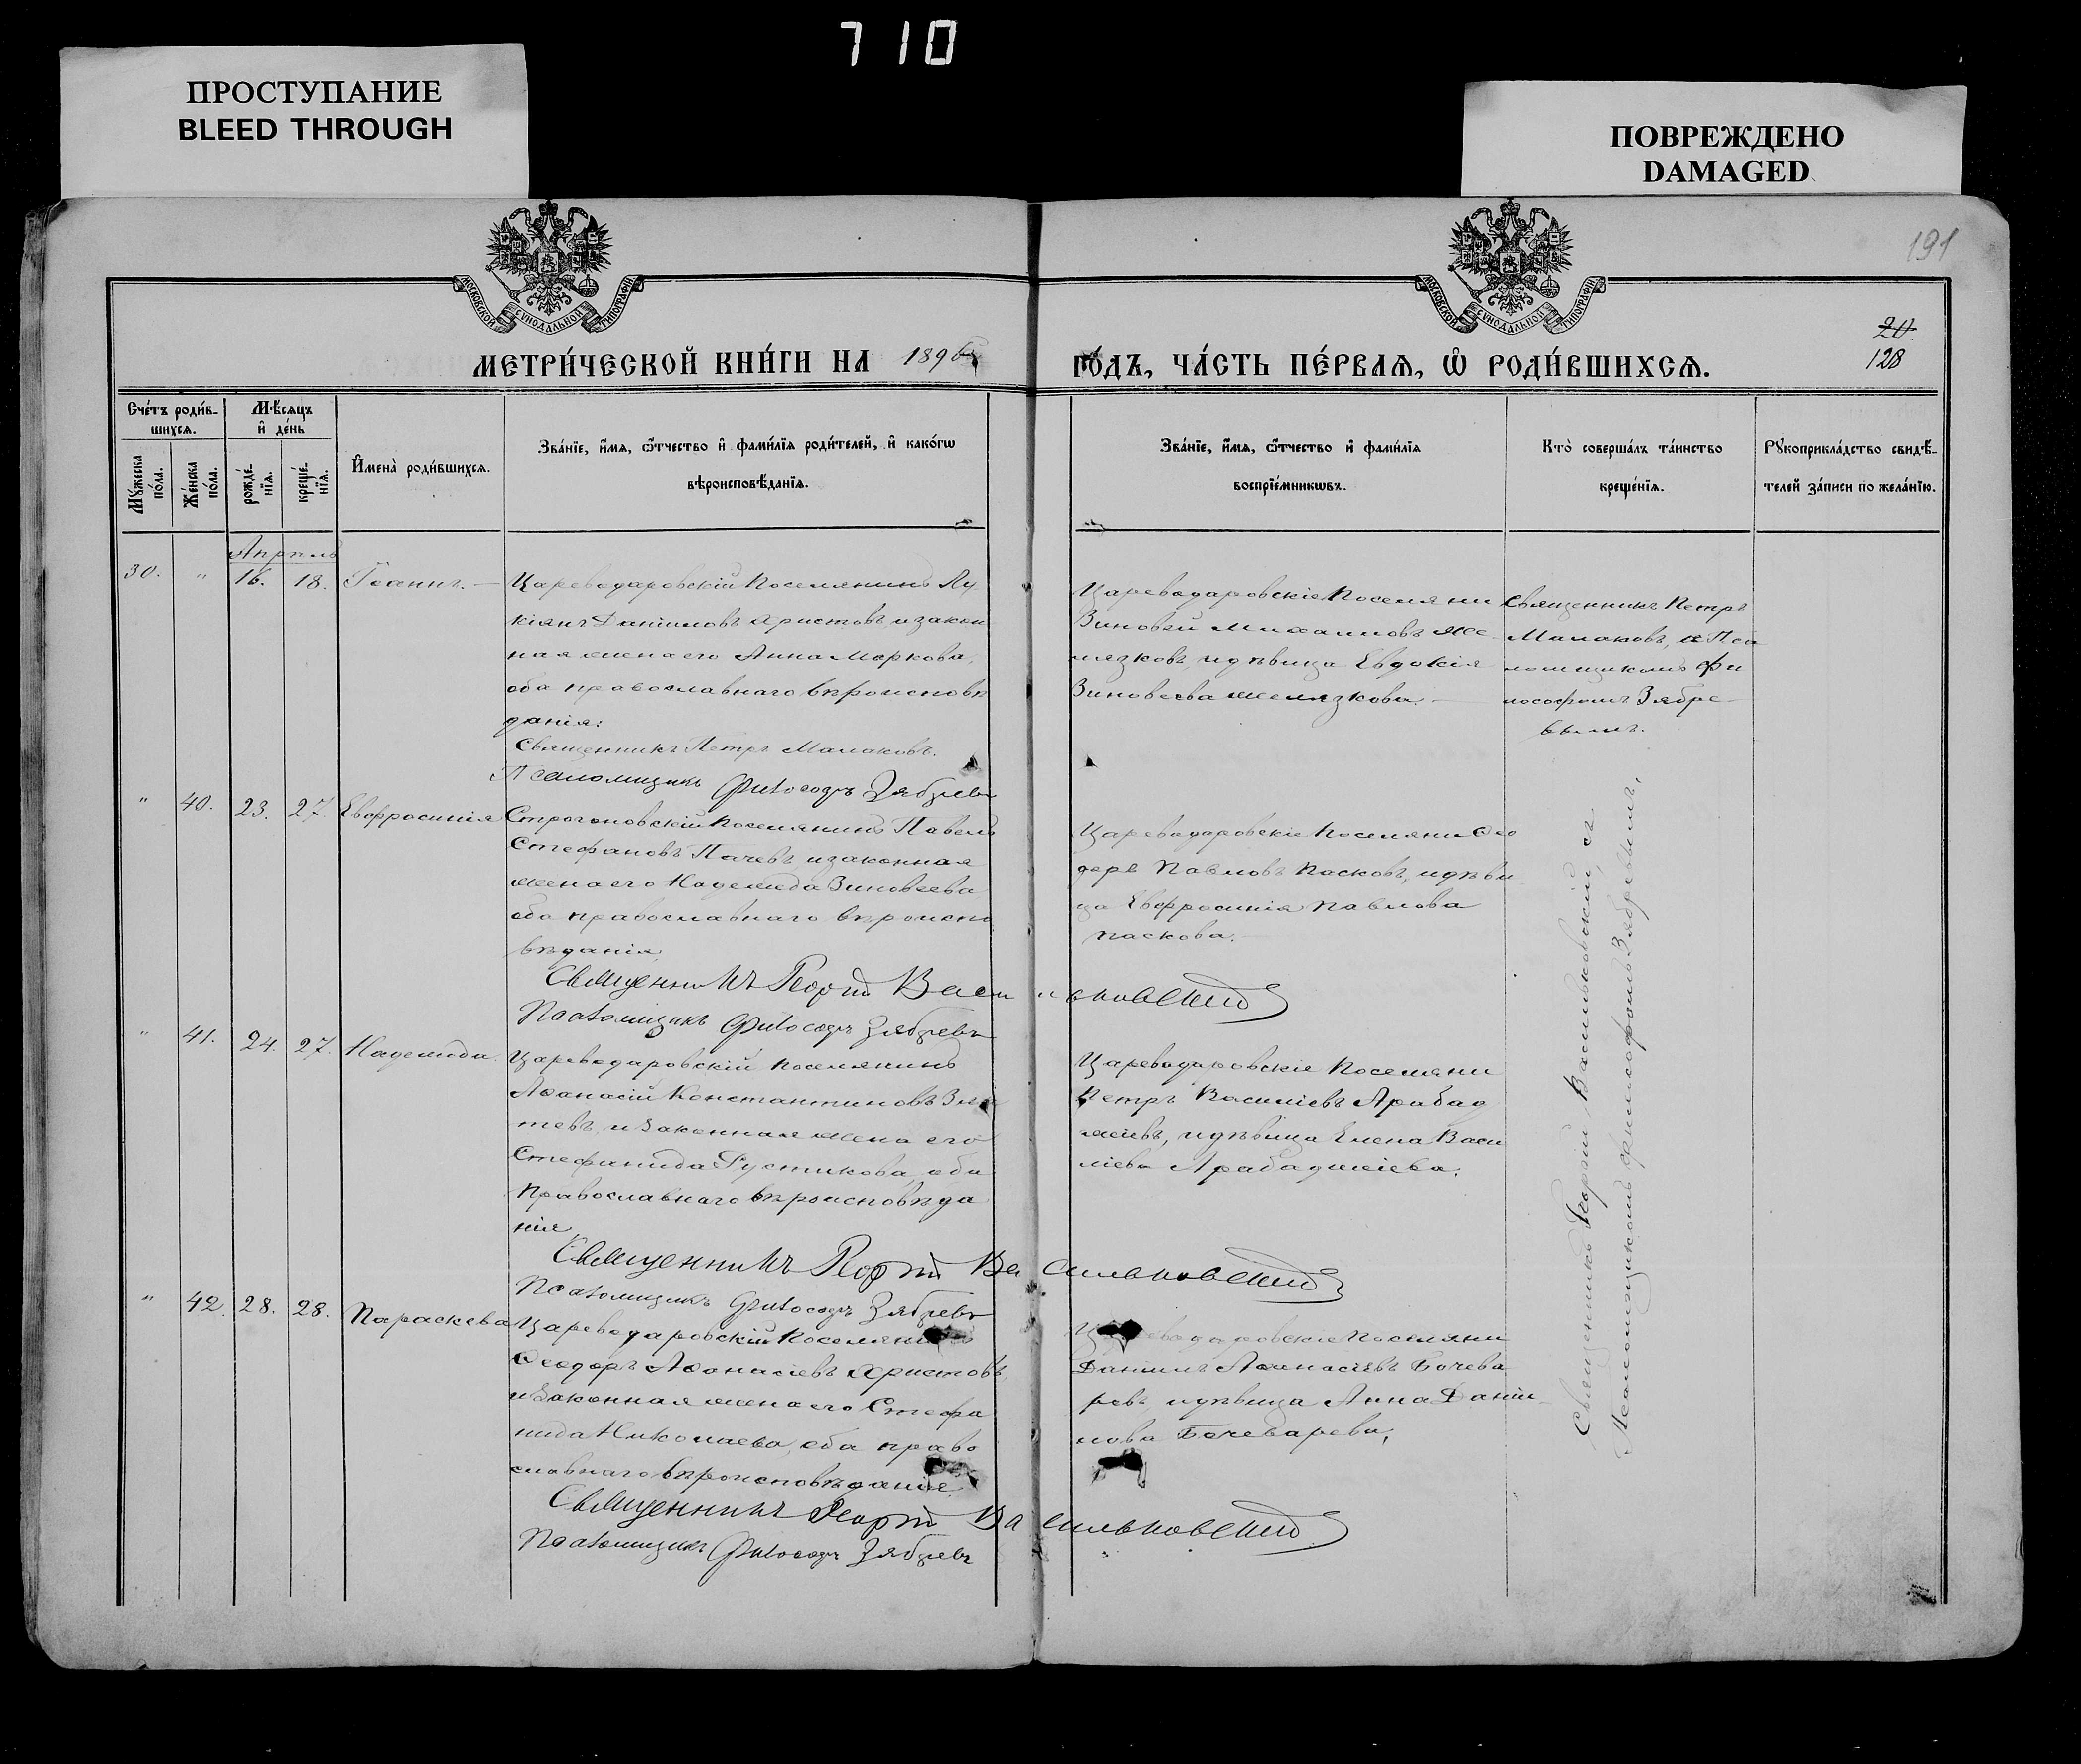 710
ПРОСТУПАНИЕ
BLEED THROUGH
ПОВРЕЖДЕНО
DAMAGED
191
МОСКОВСКОЙ СѴНОДАЛЬНОЙ ТИПОГРАФІИ
МОСКОВСКОЙ СѴНОДАЛЬНОЙ ТИПОГРАФІИ
20.
128
МЕТРИ́ЧЕСКОЙ КНИ́ГИ НА 1896
ГО́ДЪ, ЧА́СТЬ ПЕ́РВАѦ, Ѡ҆ РОДИ́ВШИХСѦ.
Сче́тъ роди́в-
шихсѧ.
Мѣ́сѧцъ
и҆ де́нь
Мꙋ́жеска
по́ла.
Же́нска
по́ла.
рожде́-
нїѧ.
креще́-
нїѧ.
И҆мена̀ роди́вшихсѧ.
Зва́нїе, и҆́мѧ, ѻ҆́тчество и҆ фами́лїѧ роди́телей, и҆ како́гѡ
вѣроисповѣ́данїѧ.
Зва́нїе, и҆́мѧ, ѻ҆́тчество и҆ фами́лїѧ
воспрїе́мникѡвъ.
Кто̀ соверша́лъ та́инство
креще́нїѧ.
Рꙋкоприкла́дство свидѣ́-
телей за́писи по жела́нїю.
Апрѣль
30. " 16. 18. Іоаннъ. —
Царевода​ровскій Поселянинъ Лу
кіянъ Даніиловъ Христовъ, и закон
ная жена его Анна Маркова,
оба православнаго вѣроисповѣ
данія:
Священникъ Петръ Малаковъ.
Псаломщикъ Философъ Зябревъ
Цареводаровскіе Поселяни
Зиновій Михаиловъ Же
лязковъ, и дѣвица Евдокія
Зиновіева Желязкова. —
Священникъ Петръ
Малаковъ, съ Пса
ломщикомъ Фи
лософомъ Зябре
вымъ.
" 40. 23. 27. Евфросинія
Строгоновскій Поселянинъ Павелъ
Стефановъ Пачевъ и законная
жена его Надежда Зиновіева
оба православнаго вѣроиспо
вѣданія,
Священникъ Георгій Васильковскій
Псаломщикъ Философъ Зябревъ
Цареводаровскіе Поселяни Ѳео
доръ Павловъ Пасковъ, и дѣви
ца Евфросинія Павлова
Паскова. —
" 41. 24. 27. Надежда.
Цареводаровскій Поселянинъ
Аѳанасій Константиновъ
тевъ, и законная жена его
Стефанида Рустикова, оба
Православнаго вѣроисповѣда
нія
Священникъ Георгій Васильковскій
Псаломщикъ Философъ Зябревъ
Цареводаровскіе Поселяни
Петръ Василіевъ Арабад
жіевъ, и дѣвица Елена Васи
ліева Арабаджіева.
" 42. 28. 28. Параскева
Цареводаровскій Поселянинъ
Ѳеодоръ Аѳанасіевъ Христовъ,
и законная жена его Стефа
нида Николаева, оба право
славнаго вѣроисповѣданія
Священникъ Георгій Васильковскій
Псаломщикъ Философъ Зябревъ
Цареводаровскіе Поселяни
Даніилъ Аѳанасіевъ Бочева
ровъ, и дѣвица Анна Даніи
лова Бочеварова,
Священникъ Георгій Васильковскій, съ
Псаломщикомъ Философомъ Зябревымъ,